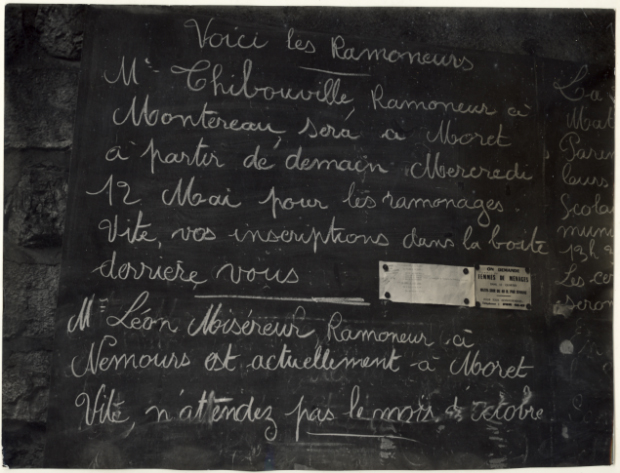 Voici les Ramoneurs
Mr Thibouville, Ramoneur à
Montereau, sera à Moret
à partir de demain Mercredi
12 Mai pour les ramonages.
Vite, vos inscriptions dans la boite
derrière vous
ON DEMANDE
FEMMES DE MENAGES
Mr Léon Misereur, Ramoneur à
Nemours est actuellement à Moret
Vite, n'attendez pas le mois d'octobre
La
Mat
Paren
leurs
Scola
muni
13h
Les ce
seron